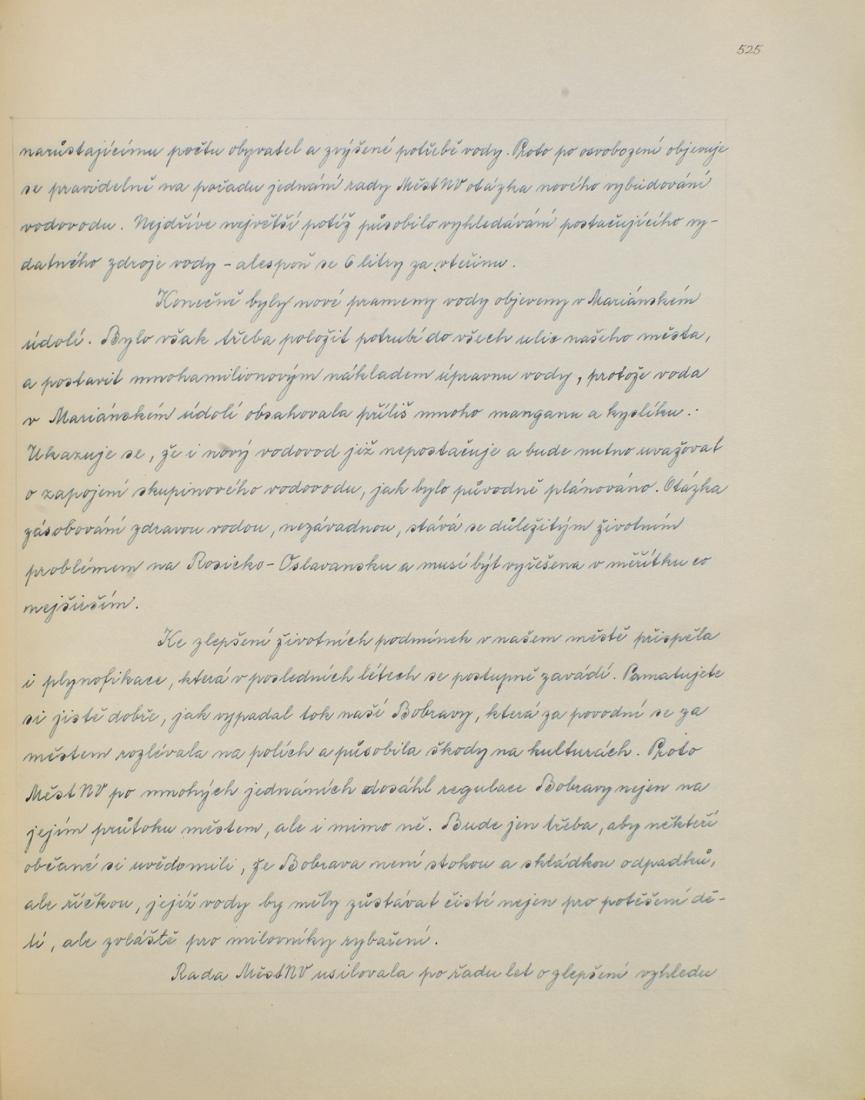 525
narůstajícímu počtu obyvatel a zvýšení potřebě vody. Proto po osvobození objevuje
se pravidelně na pořadu jednání rady MěstNV otázka nového vybudování
vodovodu. Nejdříve největší potíž působilo vyhledávání postačujícího vy-
datného zdroje vody - alespoň se 6 litry za vteřinu.
Konečně byly nové prameny vody objeveny v Mariánském
údolí. Bylo však třeba položit potrubí do všech ulic našeho města,
a postavit mnohamilionovým nákladem úpravnu vody, protože voda
v Mariánském údolí obsahovala příliš mnoho manganu a kyslíku.
Ukazuje se, že i nový vodovod již nepostačuje a bude nutno uvažovat
o zapojení skupinového vodovodu, jak bylo původně plánováno. Otázka
zásobování zdravou vodou, nezávadnou, stává se důležitým životním
problémem na Rosicko-Oslavansku a musí být vyřešena v měřítku co
nejširším.
Ke zlepšení životních podmínek v našem městě přispěla
i plynofikace, která v posledních létech se postupně zavádí. Pamatujete
si jistě dobře, jak vypadal tok naší Bobravy, která za povodní se za
městem rozlévala na polích a působila škody na kulturách. Proto
MěstNV po mnohých jednáních dosáhl regulace Bobravy nejen na
jejím průtoku městem, ale i mimo ně. Bude jen třeba, aby někteří
občané si uvědomili, že Bobrava není stokou a skládkou odpadků,
ale říčkou, jejíž vody by měly zůstávat čisté nejen pro potěšení dě-
tí, ale zvláště pro milovníky rybaření.
Rada MěstNV usilovala po řadu let o zlepšení vzhledu